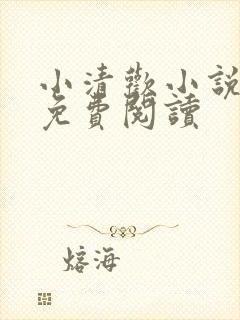 小清歡小說
免費閱讀
熔海